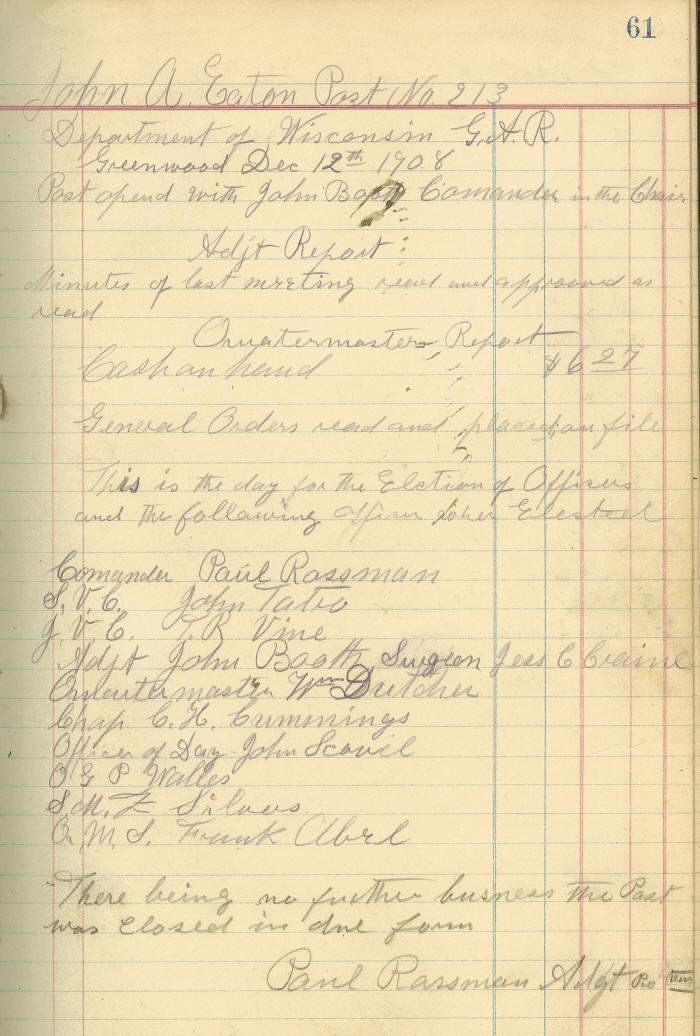 61
John A. Eaton Post No. 213
Department of Wisconsin G.A.R.
Greenwood Dec 12th 1908
Post opend with John Booth Comander in the Chair
Adjt Report
Minutes of last meeting read and approved as
read
Quatermasters Report
Cash on hand $6 27
General Orders read and placed on file
This is the day for the Elction of Officers
and the following officer wher Elected
Comander Paul Rossman
S. V. C. John Tatro
J. V. C. T. R. Vine
Adjt John Booth, Surgeon Jess C Craine
Quartermaster Wm Dutcher
Chap. C. H. Cummings
Officer of Day John Scovil
O G P Walles
S. M. F Silvers
Q. M. S. Frank Abel
There being no further busness the Post
was Closed in due form
Paul Rossman Adgt Pro